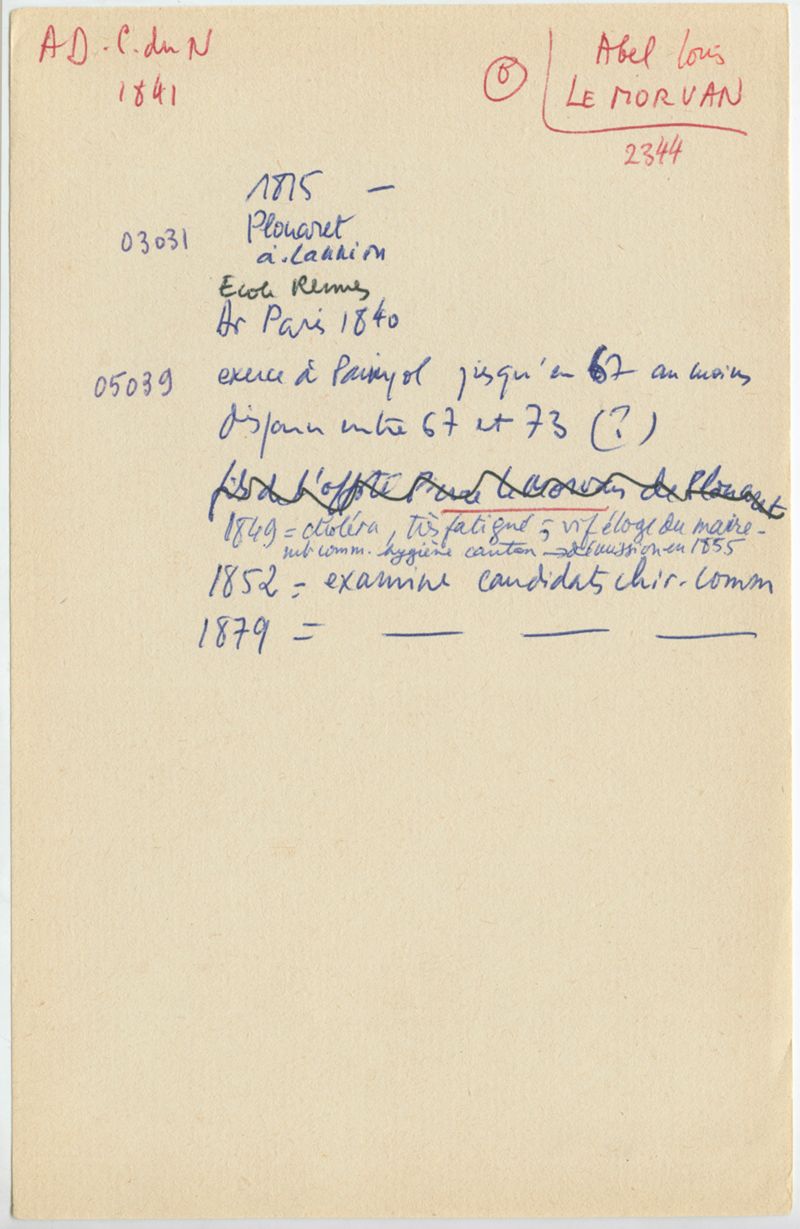 AD. C. du N
1841
Abel Louis
LE MORVAN
2344
1815 —
03031 Plouaret
a. Lannion
Ecole Rennes
Dr Paris 1840
05039 exerce à Paimpol jusqu'en 67 au moins
disparu entre 67 et 73 (?)
fils de l'off. de Pierre Le Morvan de Plouaret
1849 = choléra, très fatigué ; vif éloge du maire -
sub comm. hygiène canton → démission en 1855
1852 = examine candidats chir. comm
1879 = — — —